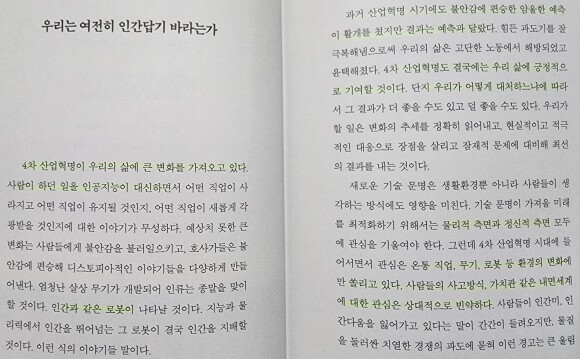 우리는 여전히 인간답기 바라는가
4차 산업혁명이 우리의 삶에 큰 변화를 가져오고 있다.
사람이 하던 일을 인공지능이 대신하면서 어떤 직업이 사
라지고 어떤 직업이 유지될 것인지, 어떤 직업이 새롭게 각
광받을 것인지에 대한 이야기가 무성하다. 예상치 못한 큰
변화는 사람들에게 불안감을 불러일으키고, 호사가들은 불
안감에 편승해 디스토피아적인 이야기들을 다양하게 만들
어낸다. 엄청난 살상 무기가 개발되어 인류는 종말을 맞이
할 것이다. 인간과 같은 로봇이 나타날 것이다. 지능과 물
리력에서 인간을 뛰어넘는 그 로봇이 결국 인간을 지배할
것이다. 이런 식의 이야기들 말이다.
과거 산업혁명 시기에도 불안감에 편승한 암울한 예측
이 활개를 쳤지만 결과는 예측과 달랐다. 힘든 과도기를 잘
극복해냄으로써 우리의 삶은 고단한 노동에서 해방되었고
윤택해졌다. 4차 산업혁명도 결국에는 우리 삶에 긍정적으
로 기여할 것이다. 단지 우리가 어떻게 대처하느냐에 따라
서 그 결과가 더 좋을 수도 있고 덜 좋을 수도 있다. 우리가
할 일은 변화의 추세를 정확히 읽어내고, 현실적이고 적극
적인 대응으로 장점을 살리고 잠재적 문제에 대비해 최선
의 결과를 내는 것이다.
새로운 기술 문명은 생활환경뿐 아니라 사람들이 생
각하는 방식에도 영향을 미친다. 기술 문명이 가져올 미래
를 최적화하기 위해서는 물리적 측면과 정신적 측면 모두
에 관심을 기울여야 한다. 그런데 4차 산업혁명 시대에 들
어서면서 관심은 온통 직업, 무기, 로봇 등 환경의 변화에
만 쏠리고 있다. 사람들의 사고방식, 가치관 같은 내면세계
에 대한 관심은 상대적으로 빈약하다. 사람들이 인간미, 인
간다움을 잃어가고 있다는 말이 간간이 들려오지만, 물질
을 둘러싼 치열한 경쟁의 파도에 묻혀 이런 경고는 큰 울림